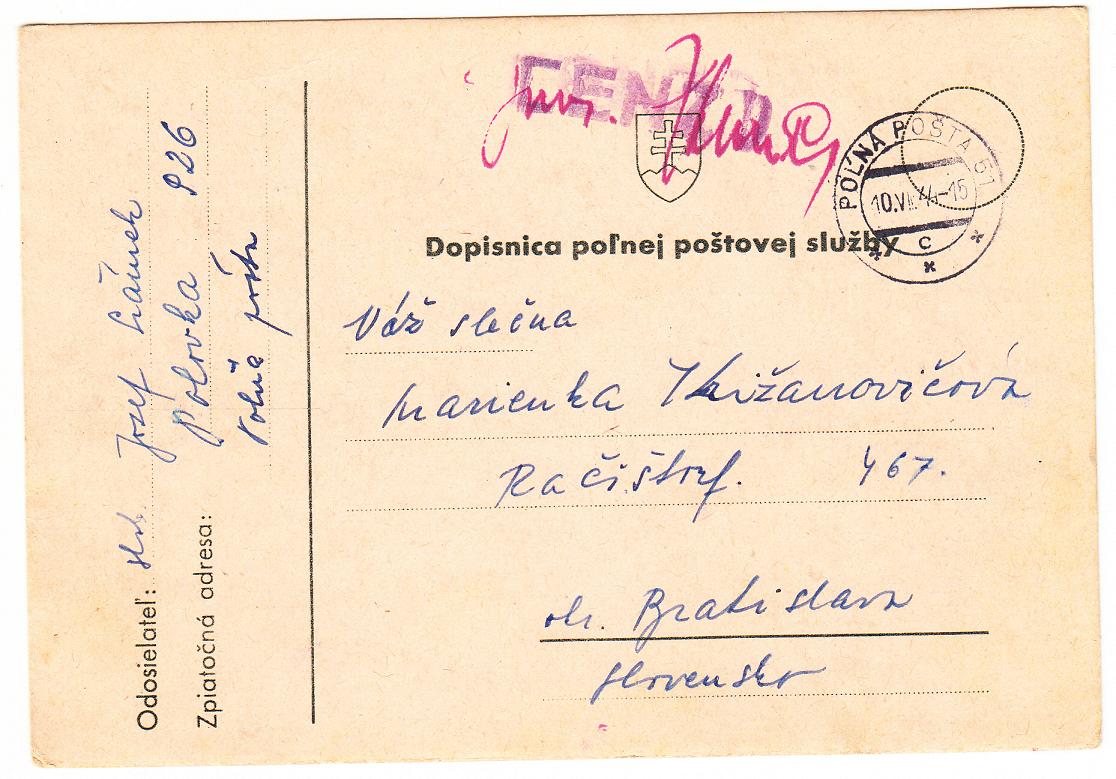 CENZ
POĽNÁ POŠTA 51
10.VII.44-15
C
Dopisnica poľnej poštovej služby
Váž slečna
Marienka Križanovičová
Račištorf. 467.
ok. Bratislava
Slovensko
Odosielateľ: Jozef
Zpiatočná adresa: Polovka 926
Polná pošta